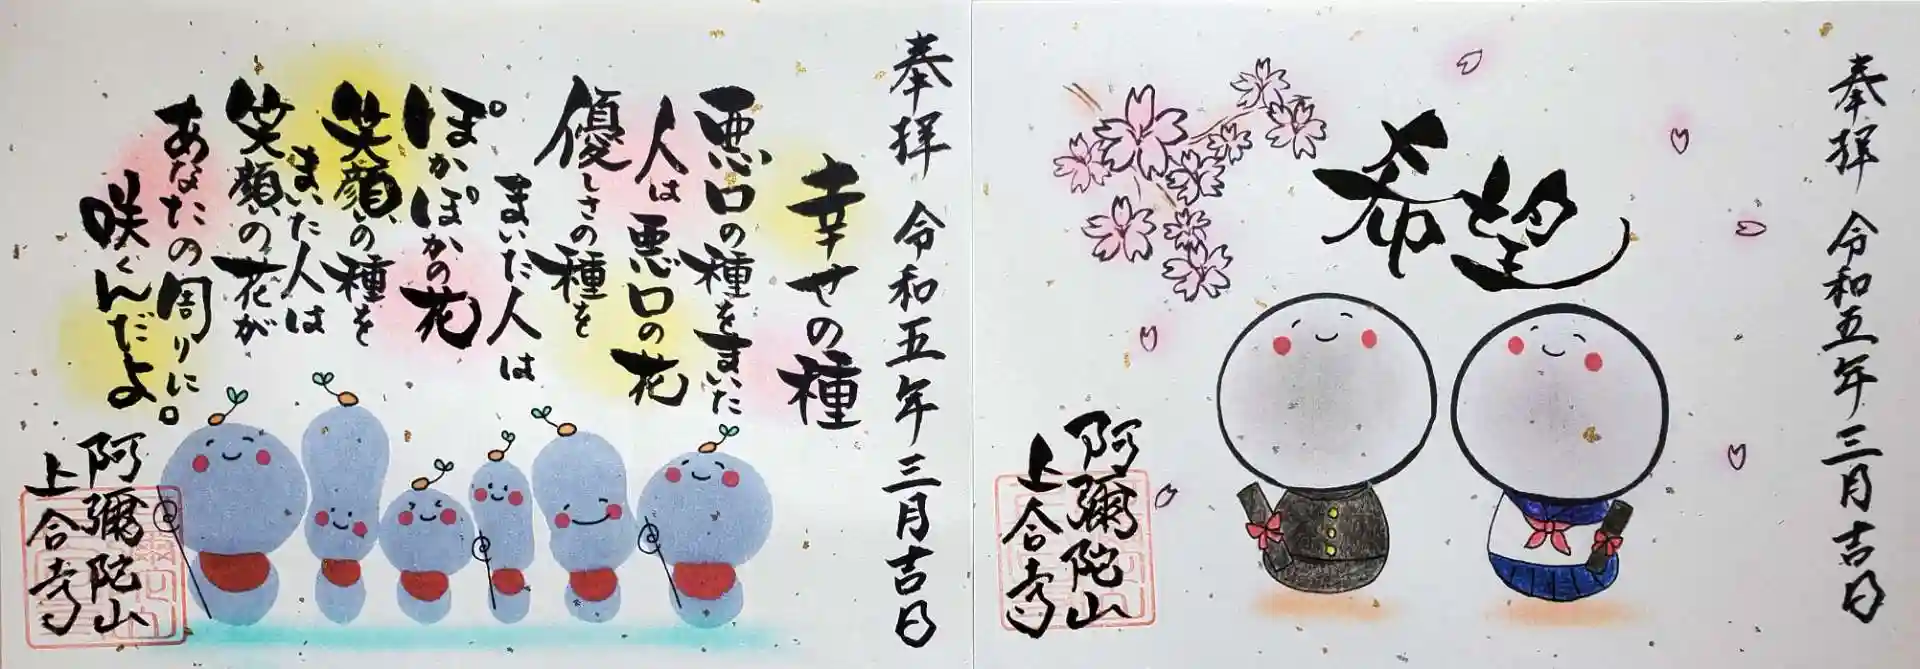 奉拝 令和五年三月吉日
幸せの種
悪口の種をまいた
人は 悪口の花
優しさの種を
まいた人は
ぽかぽかの花
笑顔の種を
まいた人は
笑顔の花が
あなたの周りに。
咲くんだよ
阿彌陀山
上合寺
奉拝 令和五年三月吉日
希望
阿彌陀山
上合寺